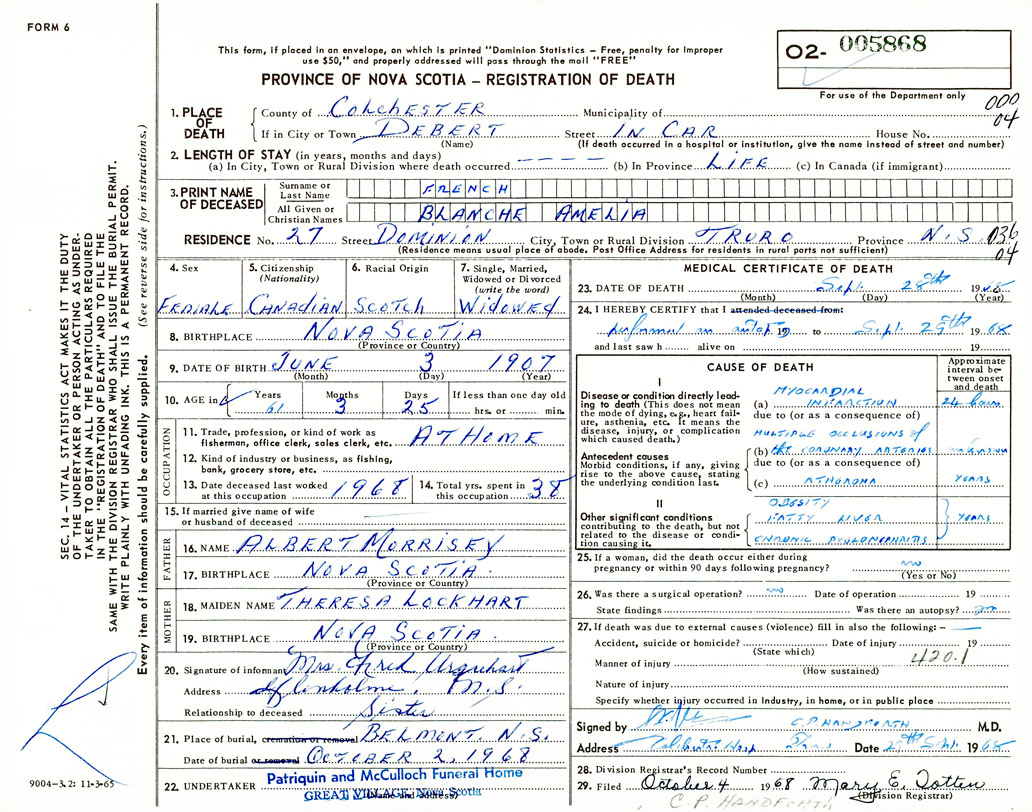 FORM 6
This form, if placed in an envelope, on which is printed "Dominion Statistics – Free, penalty for improper
use $50," and properly addressed will pass through the mail "FREE"
PROVINCE OF NOVA SCOTIA – REGISTRATION OF DEATH
O2- 005868
For use of the Department only
000
04
1. PLACE OF DEATH
County of COLCHESTER Municipality of
If in City or Town DEBERT Street IN CAR House No.
(Name) (If death occurred in a hospital or institution, give the name instead of street and number)
2. LENGTH OF STAY (in years, months and days)
(a) In City, Town or Rural Division where death occurred – – – – (b) In Province LIFE (c) In Canada (if immigrant)
3. PRINT NAME OF DECEASED
Surname or Last Name FRENCH
All Given or Christian Names BLANCHE AMELIA
RESIDENCE No. 27 Street DOMINION City, Town or Rural Division TRURO Province N.S. 036
04
(Residence means usual place of abode. Post Office Address for residents in rural parts not sufficient)
4. Sex
FEMALE
5. Citizenship
(Nationality)
CANADIAN
6. Racial Origin
SCOTCH
7. Single, Married,
Widowed or Divorced
(write the word)
WIDOWED
8. BIRTHPLACE NOVA SCOTIA
(Province or Country)
9. DATE OF BIRTH JUNE 3 1907
(Month) (Day) (Year)
10. AGE in Years Months Days If less than one day old
61 3 25 hrs. or min.
OCCUPATION
11. Trade, profession, or kind of work as
fisherman, office clerk, sales clerk, etc. AT HOME
12. Kind of industry or business, as fishing,
bank, grocery store, etc.
13. Date deceased last worked
at this occupation 1968
14. Total yrs. spent in
this occupation 38
15. If married give name of wife
or husband of deceased
FATHER
16. NAME ALBERT MORRISEY
17. BIRTHPLACE NOVA SCOTIA.
(Province or Country)
MOTHER
18. MAIDEN NAME THERESA LOCKHART
19. BIRTHPLACE NOVA SCOTIA.
(Province or Country)
20. Signature of informant Mrs. Fred Urquhart
Address Glenholme, N.S.
Relationship to deceased Sister
21. Place of burial, cremation or removal BELMONT N.S.
Date of burial or removal OCTOBER 2, 1968
22. UNDERTAKER Patriquin and McCulloch Funeral Home
GREAT VILLAGE, Nova Scotia
(Name and address)
MEDICAL CERTIFICATE OF DEATH
23. DATE OF DEATH Sept. 28th 1968
(Month) (Day) (Year)
24. I HEREBY CERTIFY that I attended deceased from:
performed an autopsy 19 to Sept. 29th 1968
and last saw h alive on 19
CAUSE OF DEATH
Approximate
interval be-
tween onset
and death
I
Disease or condition directly lead-
ing to death (This does not mean
the mode of dying, e.g., heart fail-
ure, asthenia, etc. It means the
disease, injury, or complication
which caused death.)
MYOCARDIAL
(a) INFARCTION 24 hours
due to (or as a consequence of)
Antecedent causes
Morbid conditions, if any, giving
rise to the above cause, stating
the underlying condition last.
MULTIPLE OCCLUSIONS of
(b) the CORONARY ARTERIES unknown
due to (or as a consequence of)
(c) ATHEROMA YEARS
II
Other significant conditions
contributing to the death, but not
related to the disease or condi-
tion causing it.
OBESITY
FATTY LIVER YEARS
CHRONIC PYELONEPHRITIS
25. If a woman, did the death occur either during
pregnancy or within 90 days following pregnancy? no
(Yes or No)
26. Was there a surgical operation? no Date of operation 19
State findings Was there an autopsy? yes
27. If death was due to external causes (violence) fill in also the following: –
Accident, suicide or homicide? Date of injury 19
(State which)
Manner of injury 420.1
(How sustained)
Nature of injury
Specify whether injury occurred in Industry, in home, or in public place
Signed by C.P. HANDFORTH M.D.
Address Colchester Hosp Truro Date 29th Sept. 1968
28. Division Registrar's Record Number
29. Filed October 4 1968 Mary E. Totten
(Division Registrar)
C. P. HANDFORTH
SEC. 14 – VITAL STATISTICS ACT MAKES IT THE DUTY
OF THE UNDERTAKER OR PERSON ACTING AS UNDER-
TAKER TO OBTAIN ALL THE PARTICULARS REQUIRED
IN THE "REGISTRATION OF DEATH" AND TO FILE THE
SAME WITH THE DIVISION REGISTRAR WHO SHALL ISSUE THE BURIAL PERMIT.
WRITE PLAINLY WITH UNFADING INK. THIS IS A PERMANENT RECORD.
Every item of information should be carefully supplied. (See reverse side for instructions.)
9004-3.2: 11-3-65